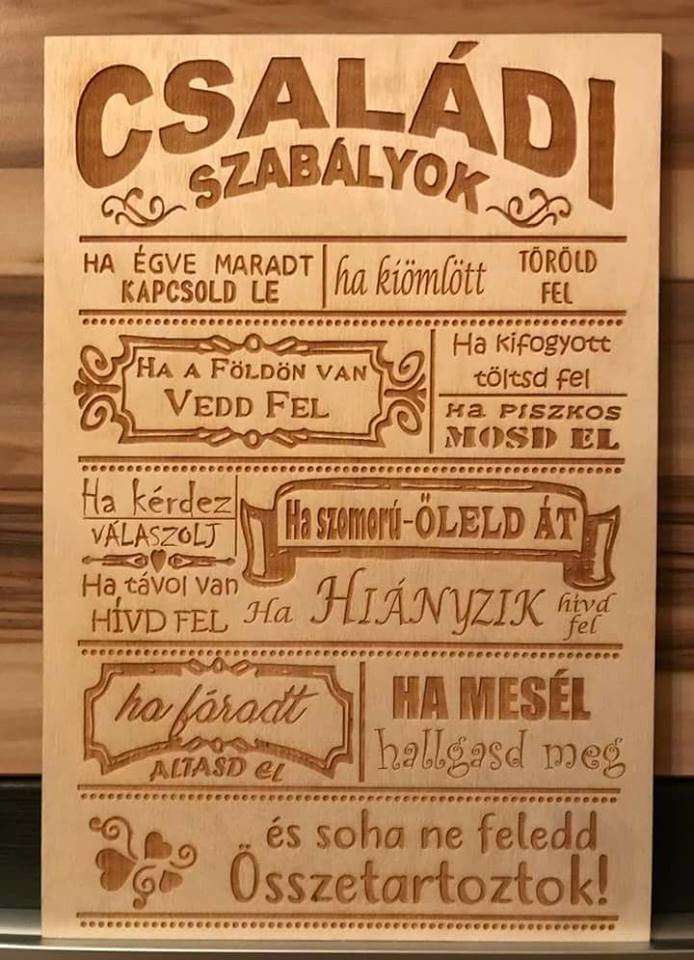 CSALÁDI
SZABÁLYOK
HA ÉGVE MARADT
KAPCSOLD LE
ha kiömlött
TÖRÖLD
FEL
HA A FÖLDÖN VAN
VEDD FEL
Ha kifogyott
töltsd fel
Ha PISZKOS
MOSD EL
Ha kérdez
VÁLASZOLJ
Ha szomorú-ÖLELD ÁT
Ha távol van
HÍVD FEL
Ha HIÁNYZIK hívd
fel
ha fáradt
ALTASD el
HA MESÉL
hallgasd meg
és soha ne feledd
Összetartoztok!